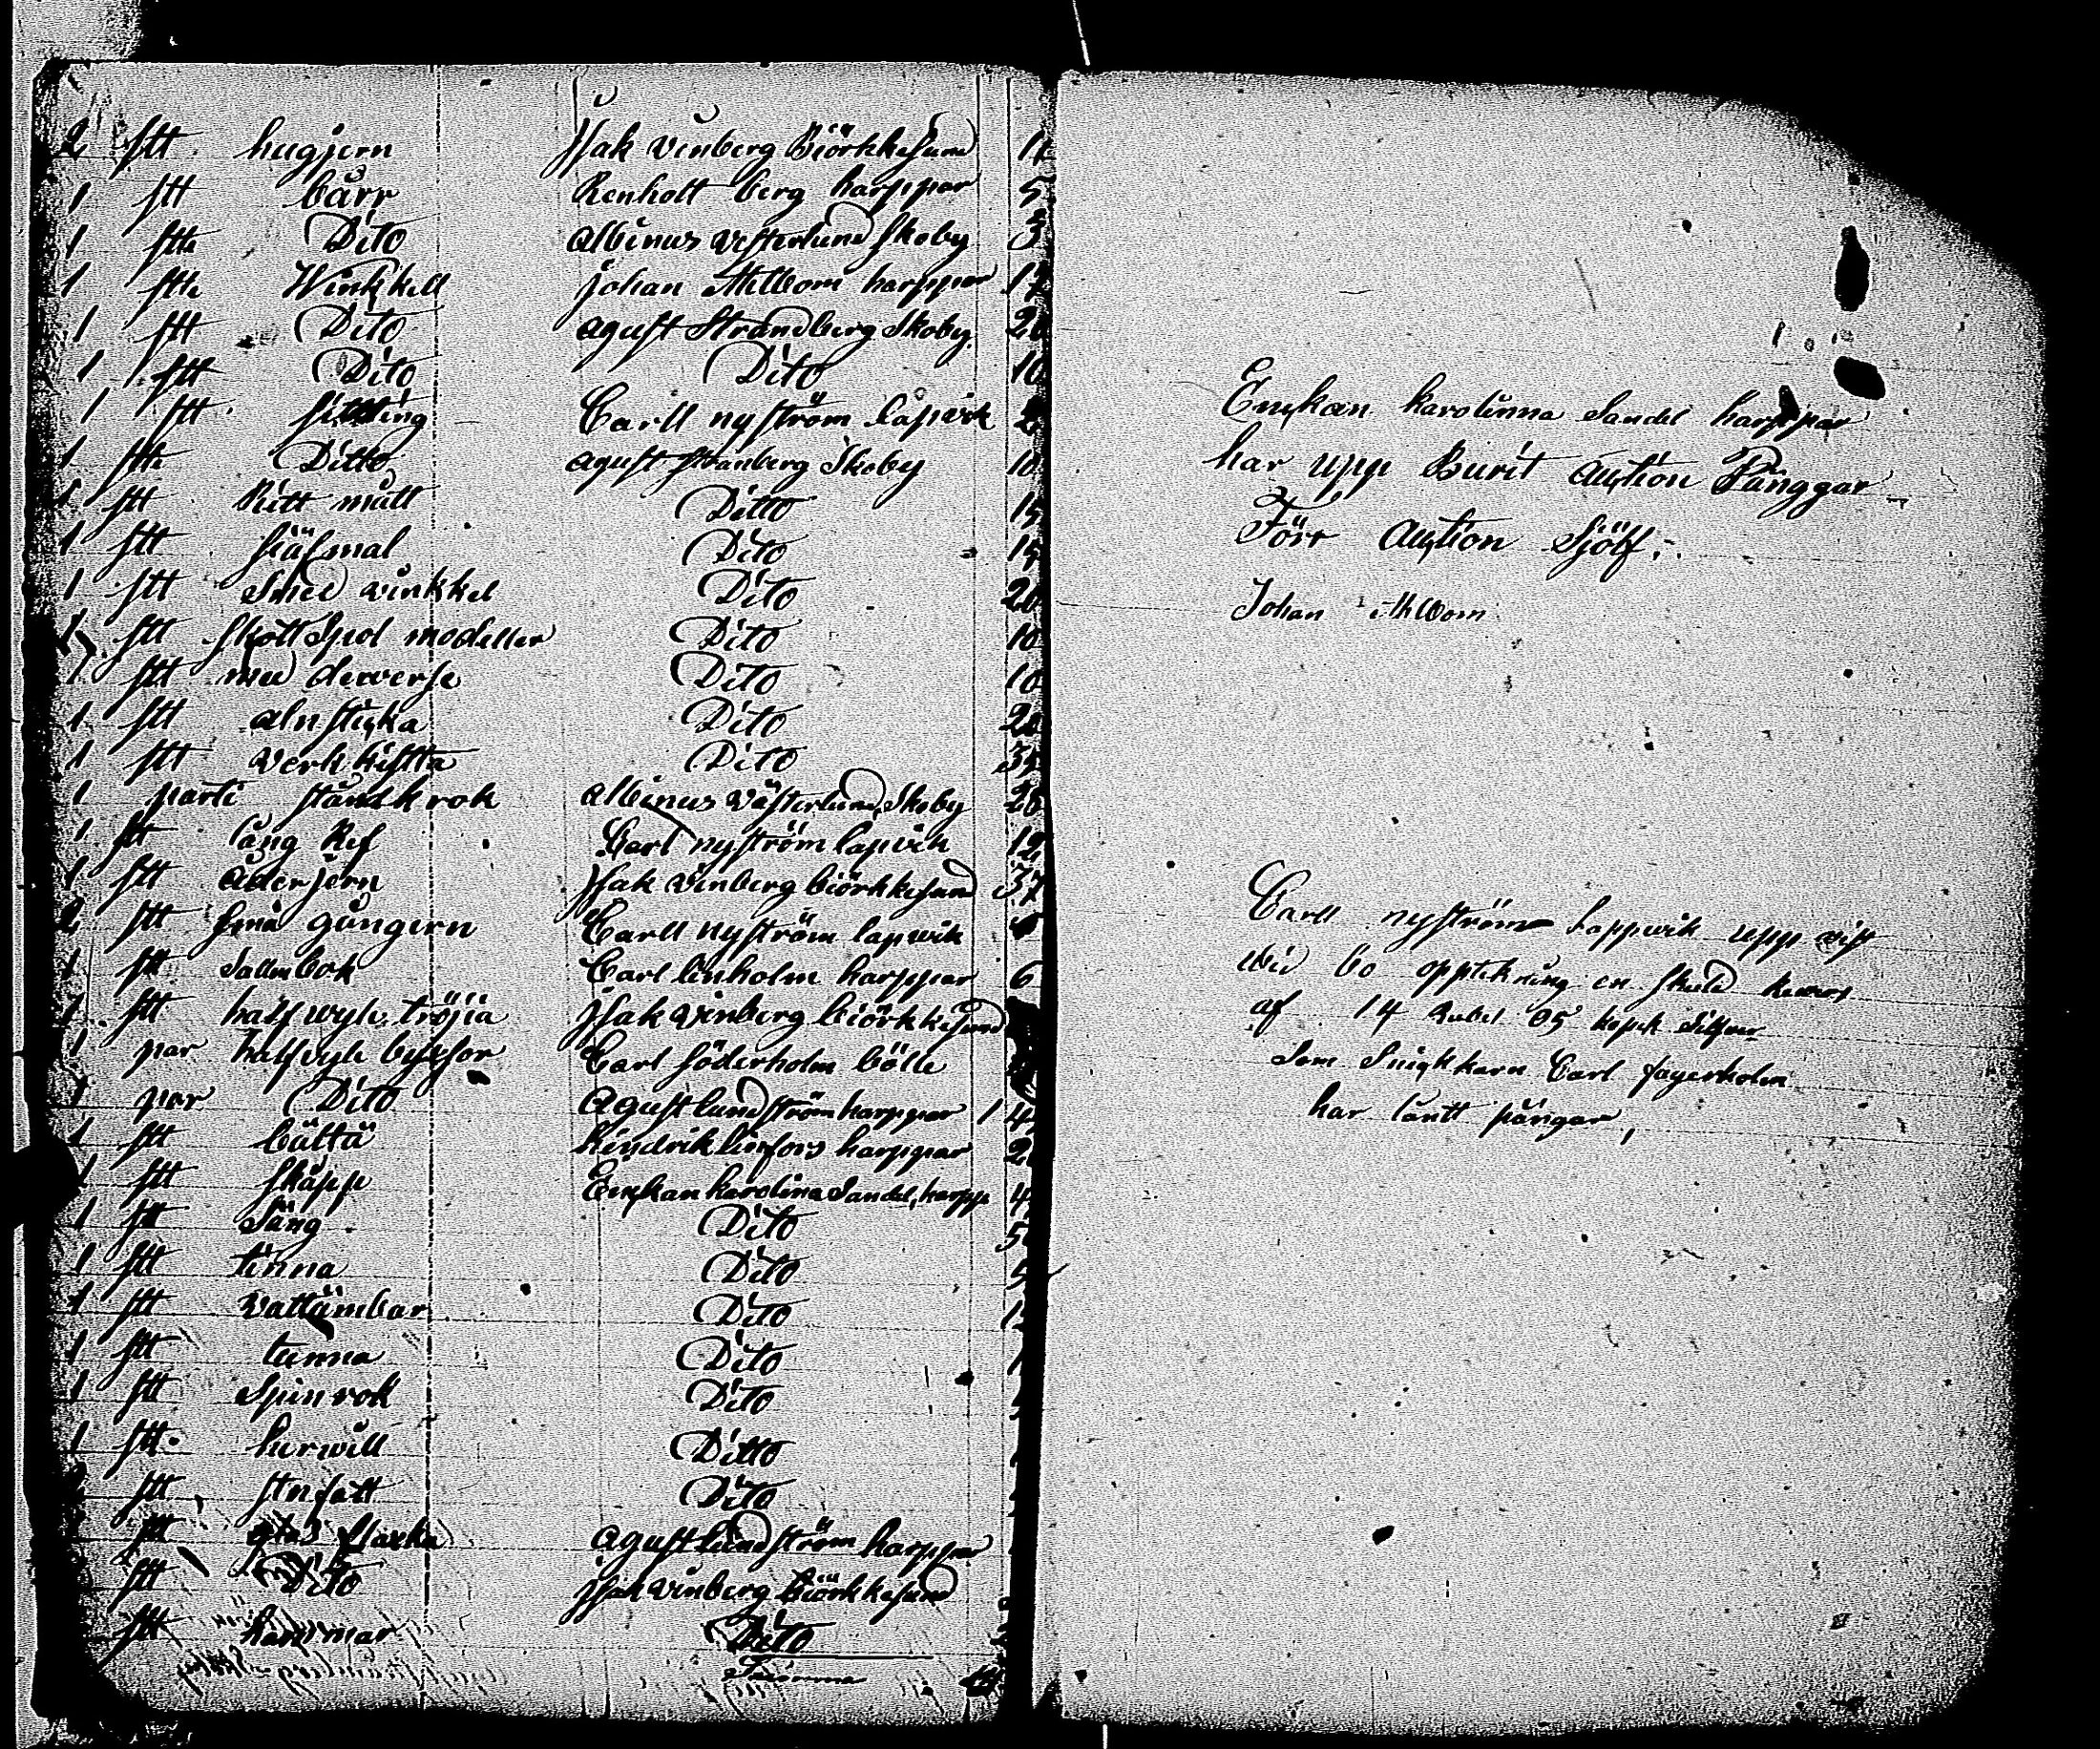 2 stt hugjern Isak Vinberg Biörkkesund
1 stt bårr Renholt berg harppar 5
1 stt Dito Albinus Vesterlund Skoby 3
1 stt Winkkell Johan Ahlbom harppar 17
1 stt Dito Agust Strandberg Skoby 20
1 stt Dito Dito 10
1 stt Carll nyström lapvik
1 stt Ditto agust stranberg Skoby 10
1 stt Ritt mått Ditto 15
1 stt Dito 15
1 stt Smed vinkkel Dito 20
1 stt Skottspol modeller Dito 10
1 stt med diverse Dito 10
1 stt alnsticka Dito 20
1 stt Verk kistta Dito
1 parti stånskrok Albinus Västerlund Skoby
1 st lång Ref Carl nyström lapvik 12
1 stt åderjern Isak Vinberg biörkkesund 37
2 stt små gängern Carll nyström lapwik
1 stt Salmbok Carl linholm harppar 6
1 stt half wyle tröjia Isak Vinberg biörkkesund
1 par halfvyle byxsor Carl Söderholm bölle
1 par Dito Agust lundström harppar 1 4
1 stt bältä Hindrik linfors harppar 2
1 stt skåpp Enckan karolina Sandel, harpp 4
1 stt Säng Dito 5
1 stt tinna Dito 5
1 stt Vattämbar Dito
1 stt tunna Dito
1 stt Spinrok Dito
1 stt härwill Ditto
stt stnfatt Dito
stt glas flaska Agust lundström harppar
stt Dito Isak Vinberg biörkkesund
stt hammar Dito
Summa
Enckan karolinna Sandel harppar
har upp Burit Auction Pänggar
Förr Auction Sjölf.
Johan Ahlbom
Carll nyström Lappwik upp vist
wid bo oppteckning en skuld
af 14 Rubel 05 kopek Silfver
Som Snickkarn Carl fagerholm
har låntt pängar,